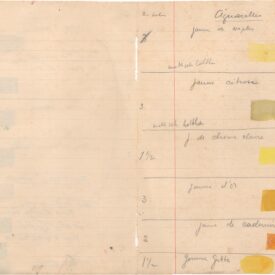 Aquarelles
jaune de naples
jaune citron
3
j de chrome claire
1 1/2
jaune d'or
3
jaune de cadmium
2
1 1/2 Gomme Gutte